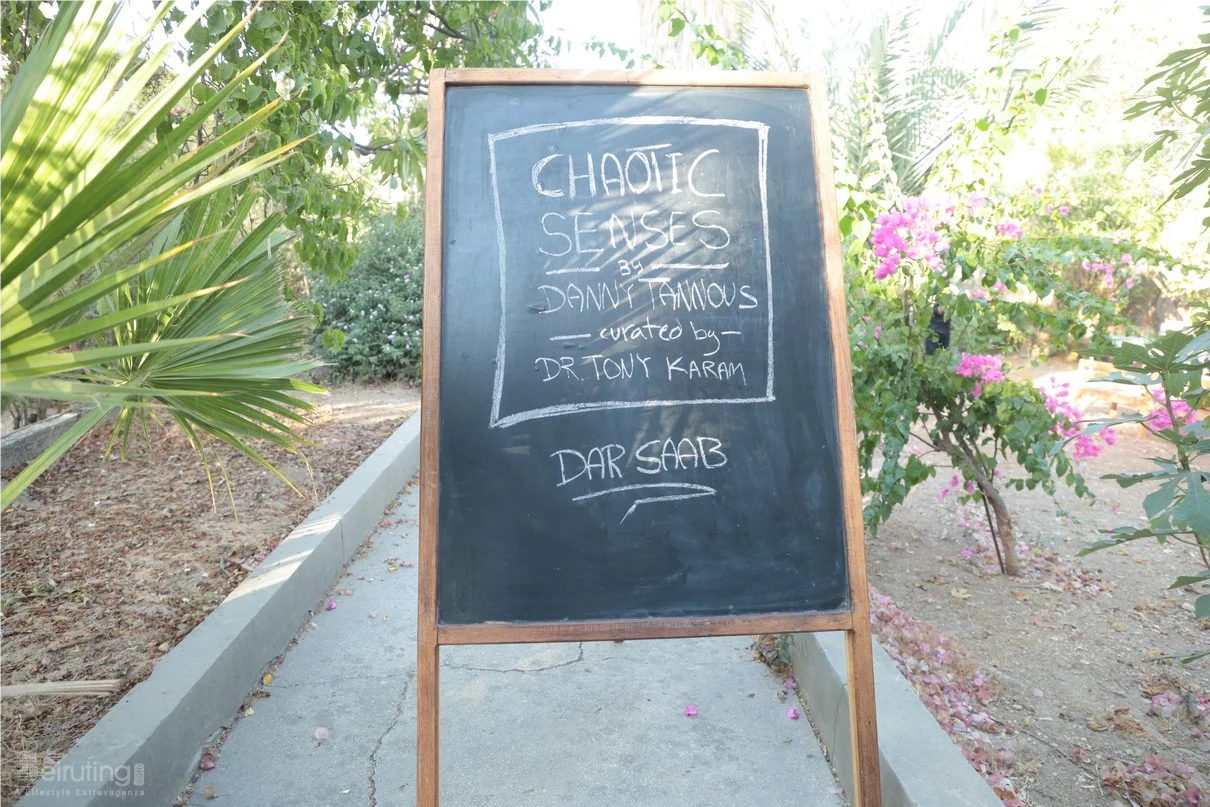 CHAOTIC
SENSES
BY
DANNY TANNOUS
— curated by —
DR. TONY KARAM
DAR SAAB
Beiruting
A Lifestyle Extravaganza